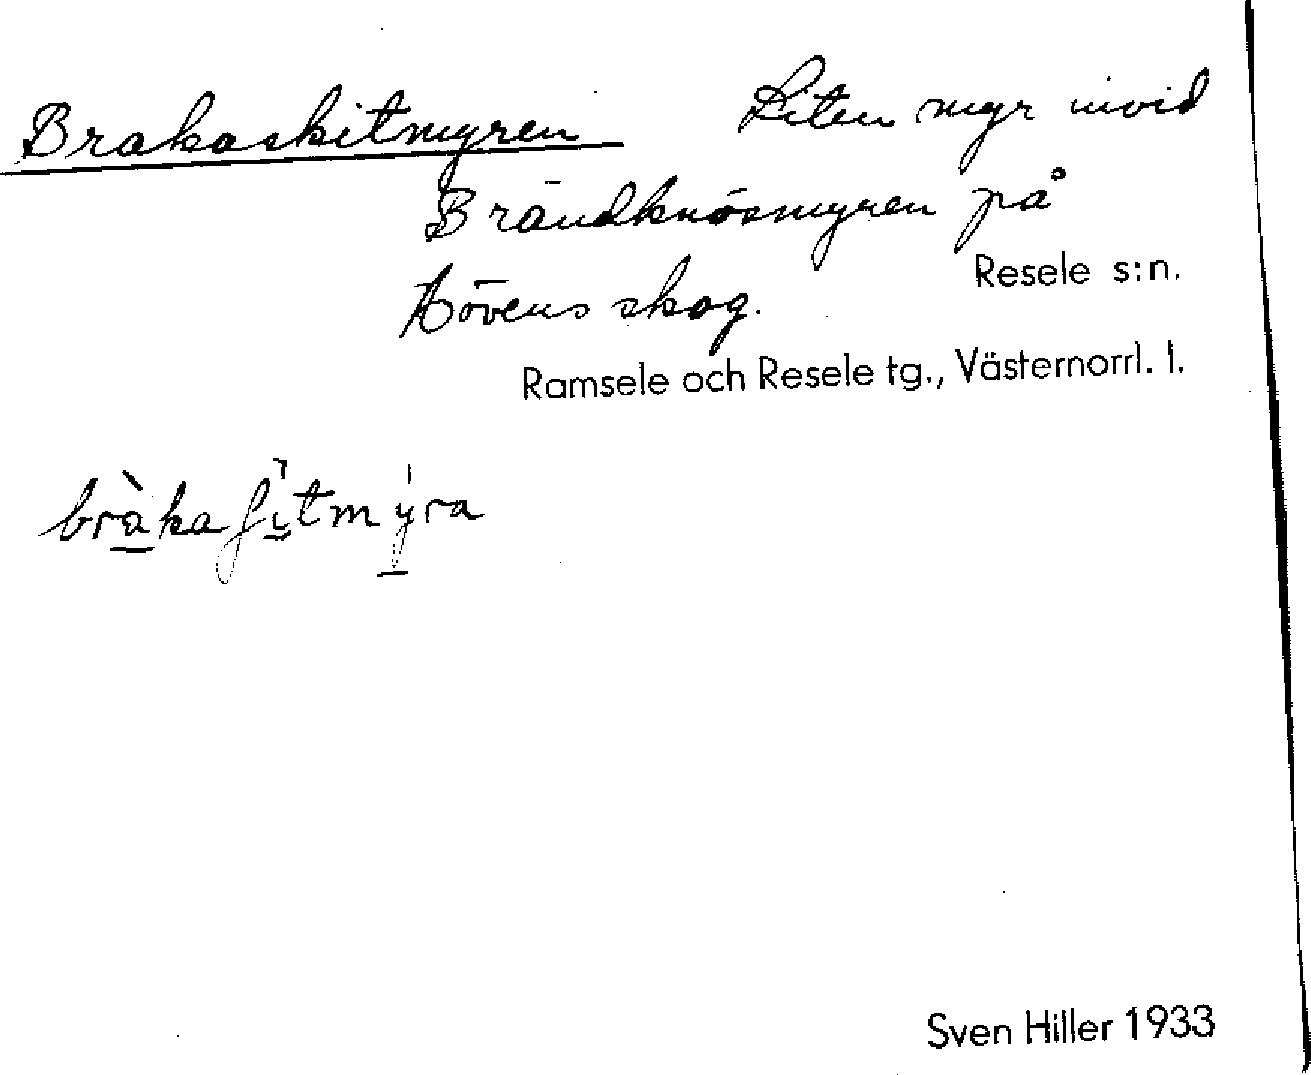 Brakaskitmyren
Liten myr invid
Brändknösmyren på
Hövens skog.
Resele s:n.
Ramsele och Resele tg., Västernorrl. l.
bràkaʃìtmýra
Sven Hiller 1933